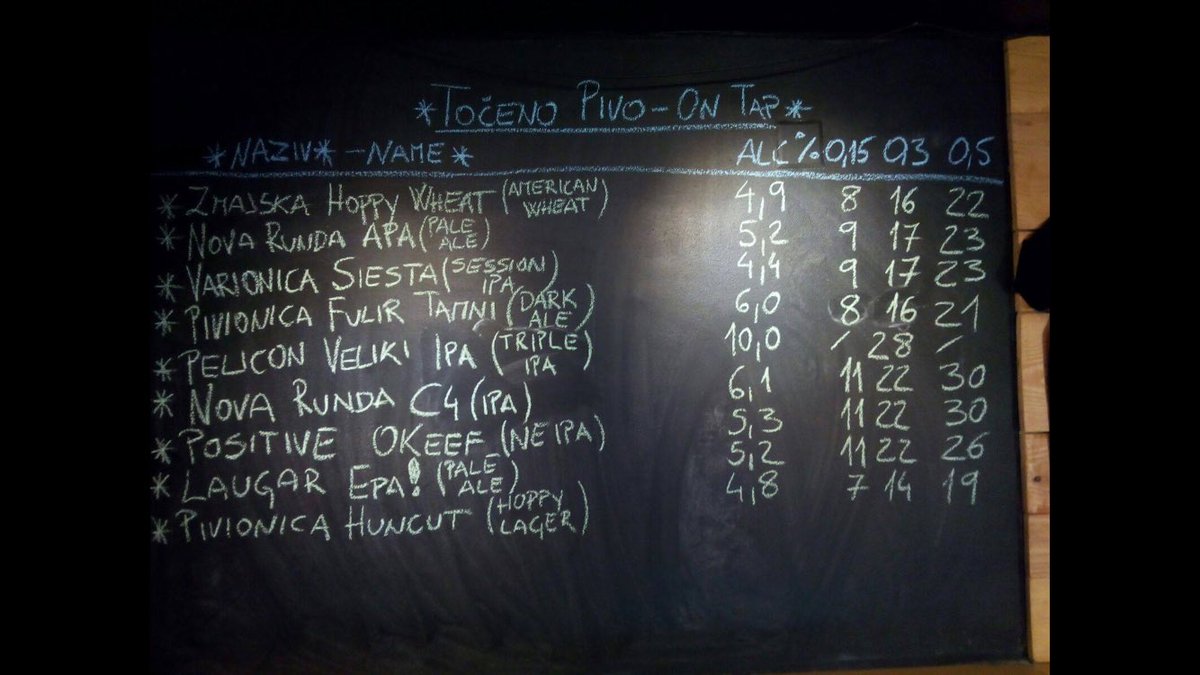 *TOČENO PIVO-ON TAP*
*NAZIV*-NAME* ALC% 0,15 0,3 0,5
* ZMAJSKA HOPPY WHEAT (AMERICAN WHEAT) 4,9 8 16 22
* NOVA RUNDA APA (PALE ALE) 5,2 9 17 23
* VARIONICA SIESTA (SESSION IPA) 4,4 9 17 23
* PIVIONICA FULIR TAMNI (DARK ALE) 6,0 8 16 21
* PELICON VELIKI IPA (TRIPLE IPA) 10,0 / 28 /
* NOVA RUNDA C4 (IPA) 6,1 11 22 30
* POSITIVE OKEEF (NEIPA) 5,3 11 22 30
* LAUGAR EPA! (PALE ALE) 5,2 11 22 26
* PIVIONICA HUNCUT (HOPPY LAGER) 4,8 7 14 19